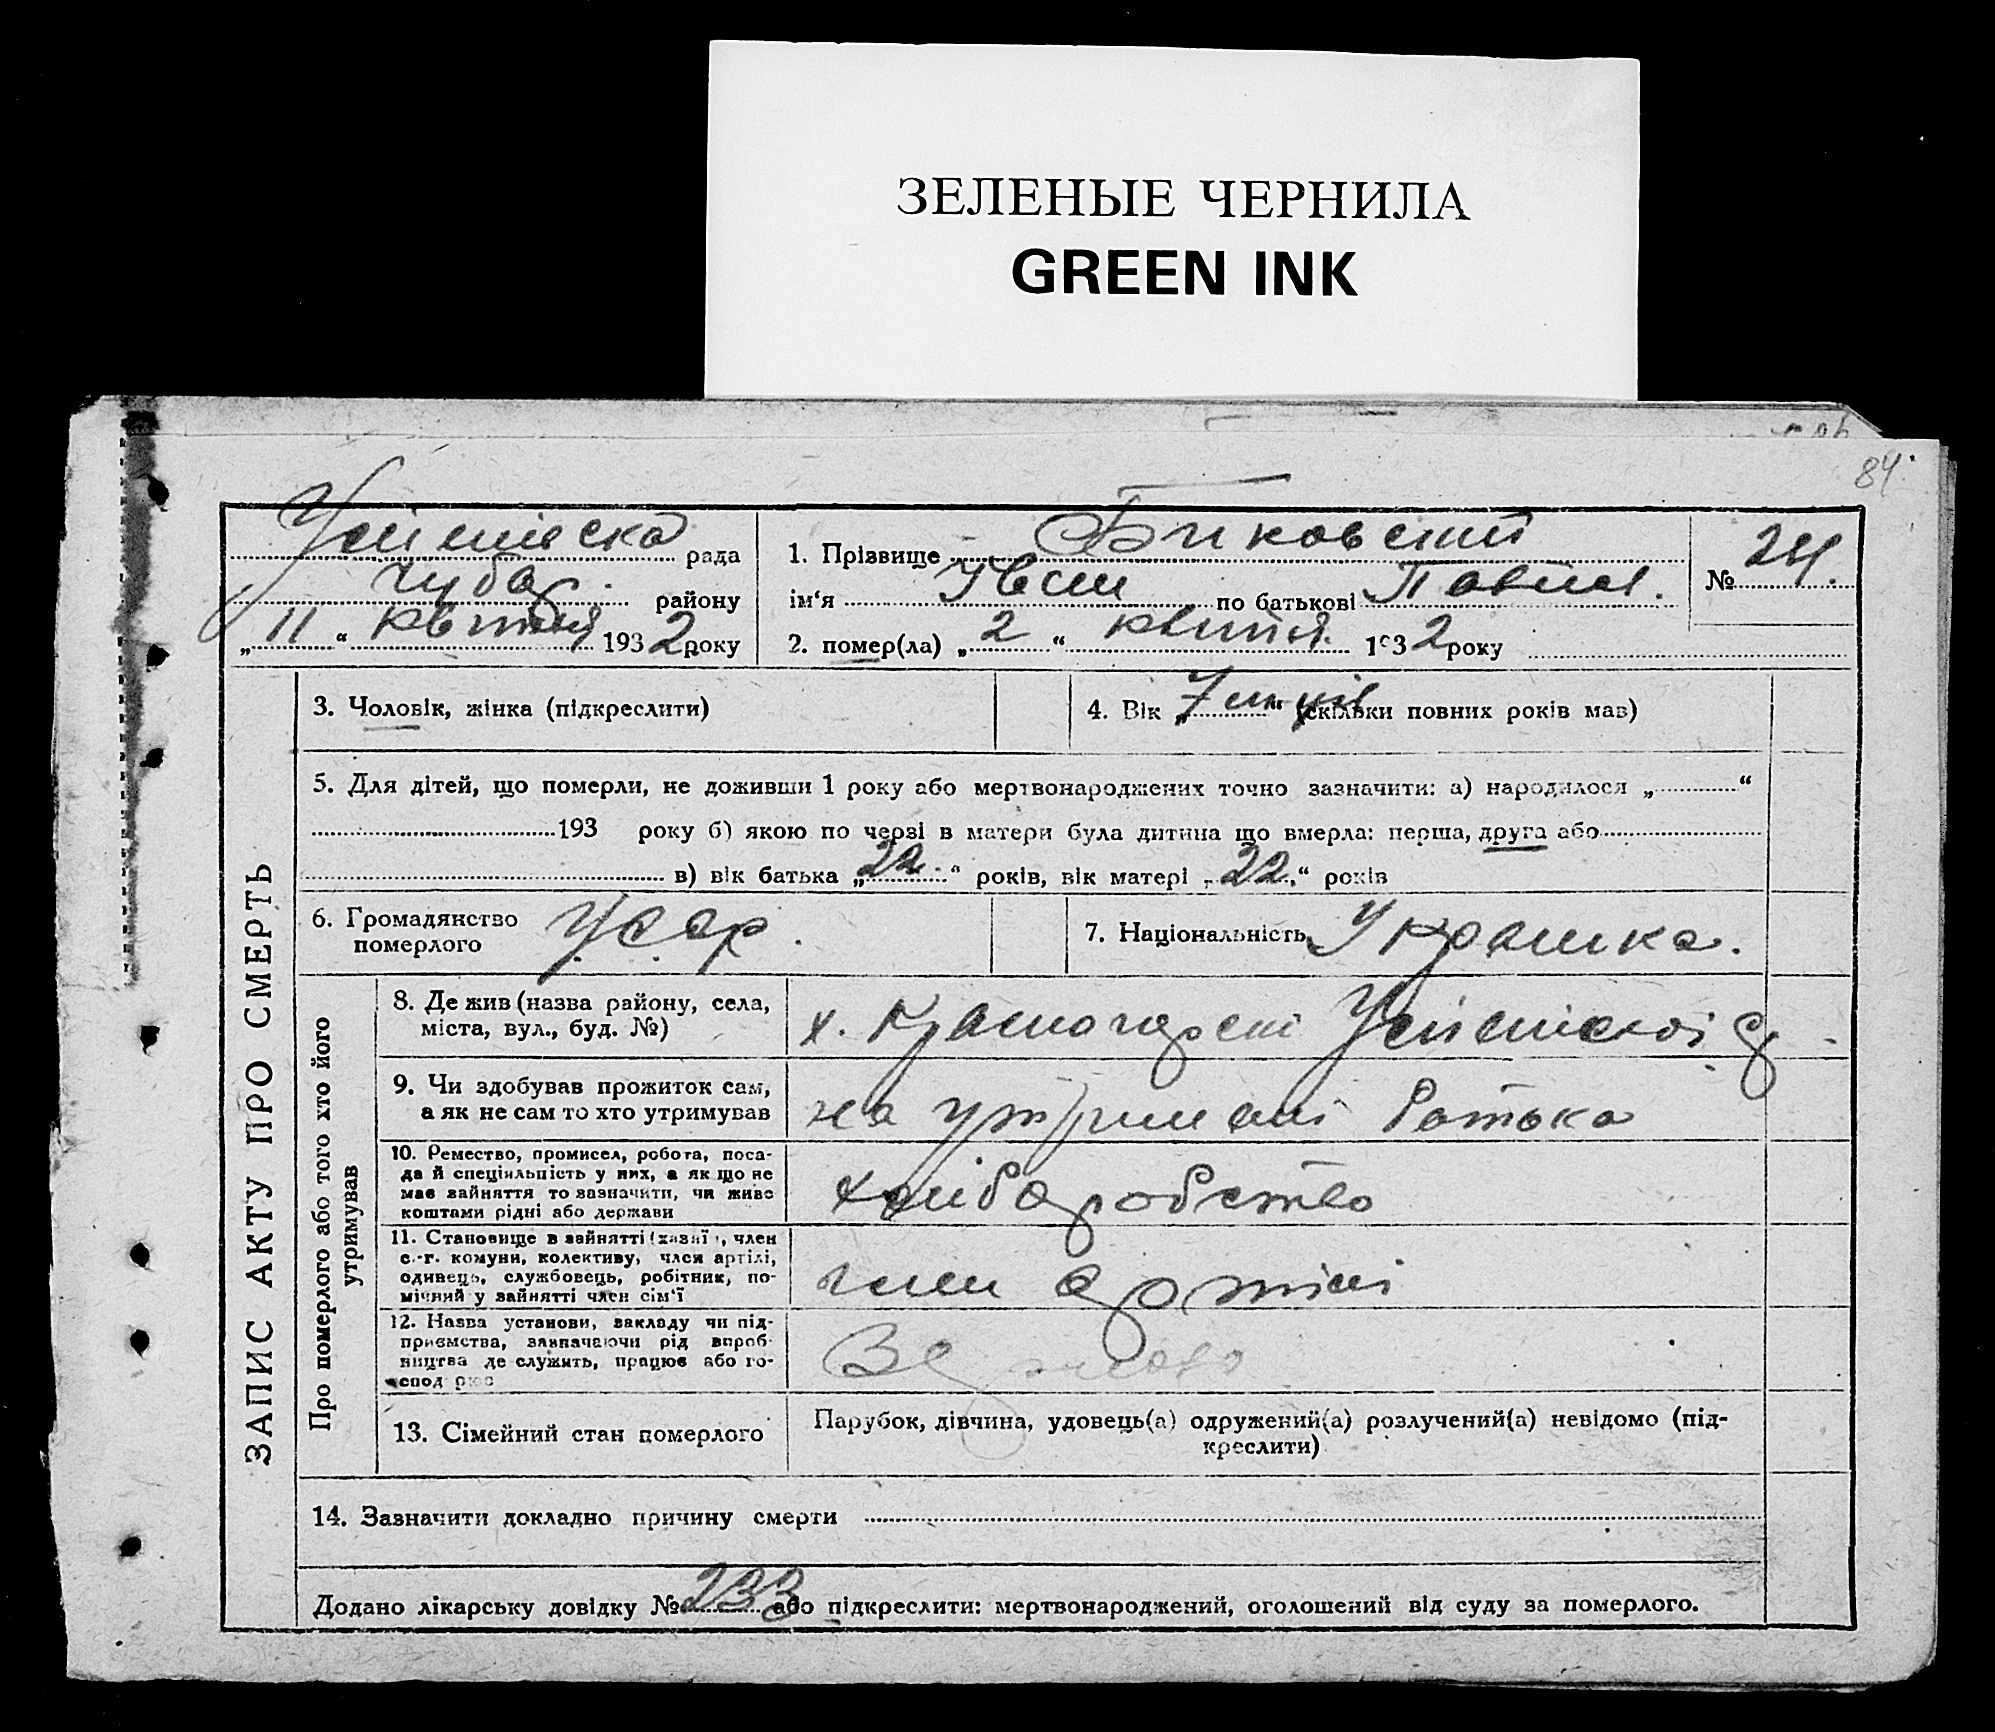 ЗЕЛЕНЫЕ ЧЕРНИЛА
GREEN INK
84.
рада
Чубар. району
„11“ квітня 1932 року
1. Прізвище Биковский
ім'я Іван по батькові Павлов.
2. помер(ла) „2“ квітня 1932 року
№ 24.
ЗАПИС АКТУ ПРО СМЕРТЬ
3. Чоловік, жінка (підкреслити)
4. Вік „7 “ (скільки повних років мав)
5. Для дітей, що померли, не доживши 1 року або мертвонароджених точно зазначити: а) народилося „ “
193 року б) якою по черзі в матери була дитина що вмерла: перша, друга або
в) вік батька „22.“ років, вік матері „22.“ років
6. Громадянство
померлого УССР.
7. Національність Украинка.
Про померлого або того хто його
утримував
8. Де жив (назва району, села,
міста, вул., буд. №)
х.
9. Чи здобував прожиток сам,
а як не сам то хто утримував
на утриманні батька
10. Ремество, промисел, робота, поса-
да й спеціяльність у них, а як що не
має зайняття то зазначити, чи живе
коштами рідні або держави
хліборобство
11. Становище в зайнятті (хазяї), член
с.-г. комуни, колективу, член артілі,
одинець, службовець, робітник, по-
мічний у зайнятті член сім'ї
член артілі
12. Назва установи, закладу чи під-
приємства, зазначаючи рід вироб-
ництва де служить, працює або го-
сподарює
13. Сімейний стан померлого
Парубок, дівчина, удовець(а) одружений(а) розлучений(а) невідомо (під-
креслити)
14. Зазначити докладно причину смерти
Додано лікарську довідку № 233 або підкреслити: мертвонароджений, оголошений від суду за померлого.